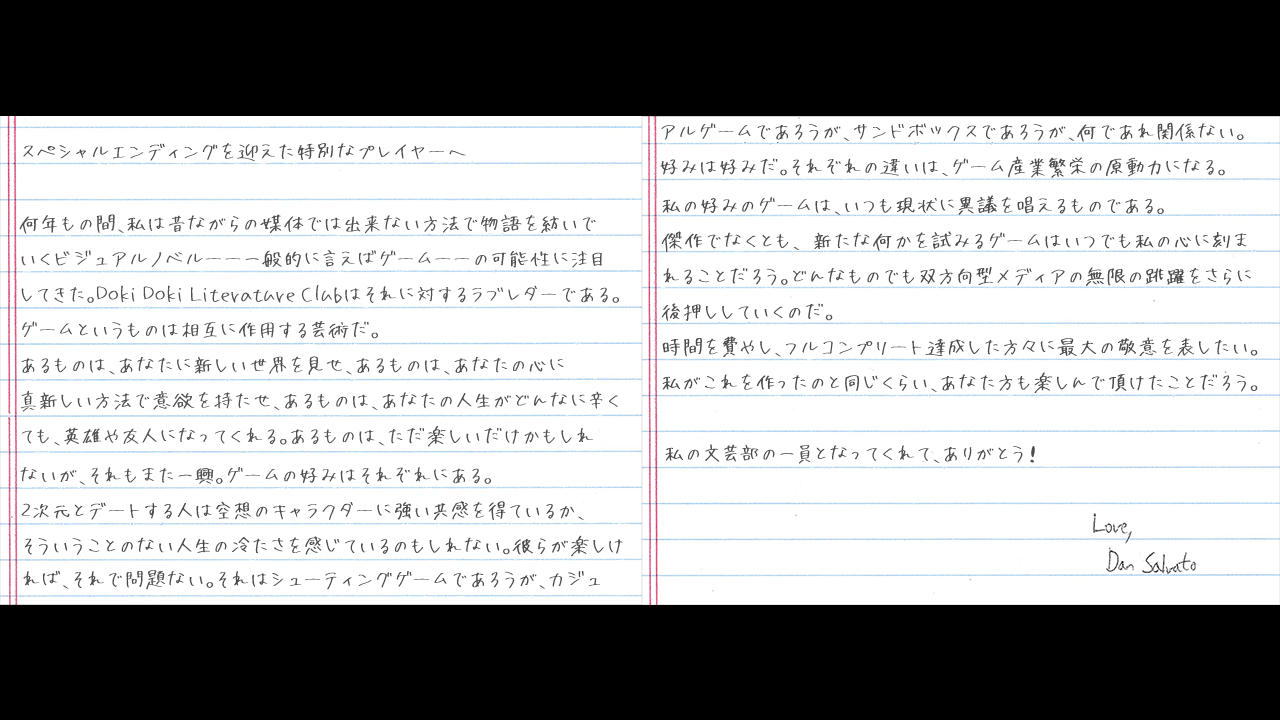 スペシャルエンディングを迎えた特別なプレイヤーへ
何年もの間、私は昔ながらの媒体では出来ない方法で物語を紡いで
いくビジュアルノベルーーー一般的に言えばゲームーーの可能性に注目
してきた。Doki Doki Literature Clubはそれに対するラブレターである。
ゲームというものは相互に作用する芸術だ。
あるものは、あなたに新しい世界を見せ、あるものは、あなたの心に
真新しい方法で意欲を持たせ、あるものは、あなたの人生がどんなに辛く
ても、英雄や友人になってくれる。あるものは、ただ楽しいだけかもしれ
ないが、それもまた一興。ゲームの好みはそれぞれにある。
2次元とデートする人は空想のキャラクターに強い共感を得ているか、
そういうことのない人生の冷たさを感じているのもしれない。彼らが楽しけ
れば、それで問題ない。それはシューティングゲームであろうが、カジュ
アルゲームであろうが、サンドボックスであろうが、何であれ関係ない。
好みは好みだ。それぞれの違いは、ゲーム産業繁栄の原動力になる。
私の好みのゲームは、いつも現状に異議を唱えるものである。
傑作でなくとも、新たな何かを試みるゲームはいつでも私の心に刻ま
れることだろう。どんなものでも双方向型メディアの無限の跳躍をさらに
後押ししていくのだ。
時間を費やし、フルコンプリート達成した方々に最大の敬意を表したい。
私がこれを作ったのと同じくらい、あなた方も楽しんで頂けたことだろう。
私の文芸部の一員となってくれて、ありがとう！
Love,
Dan Salvato